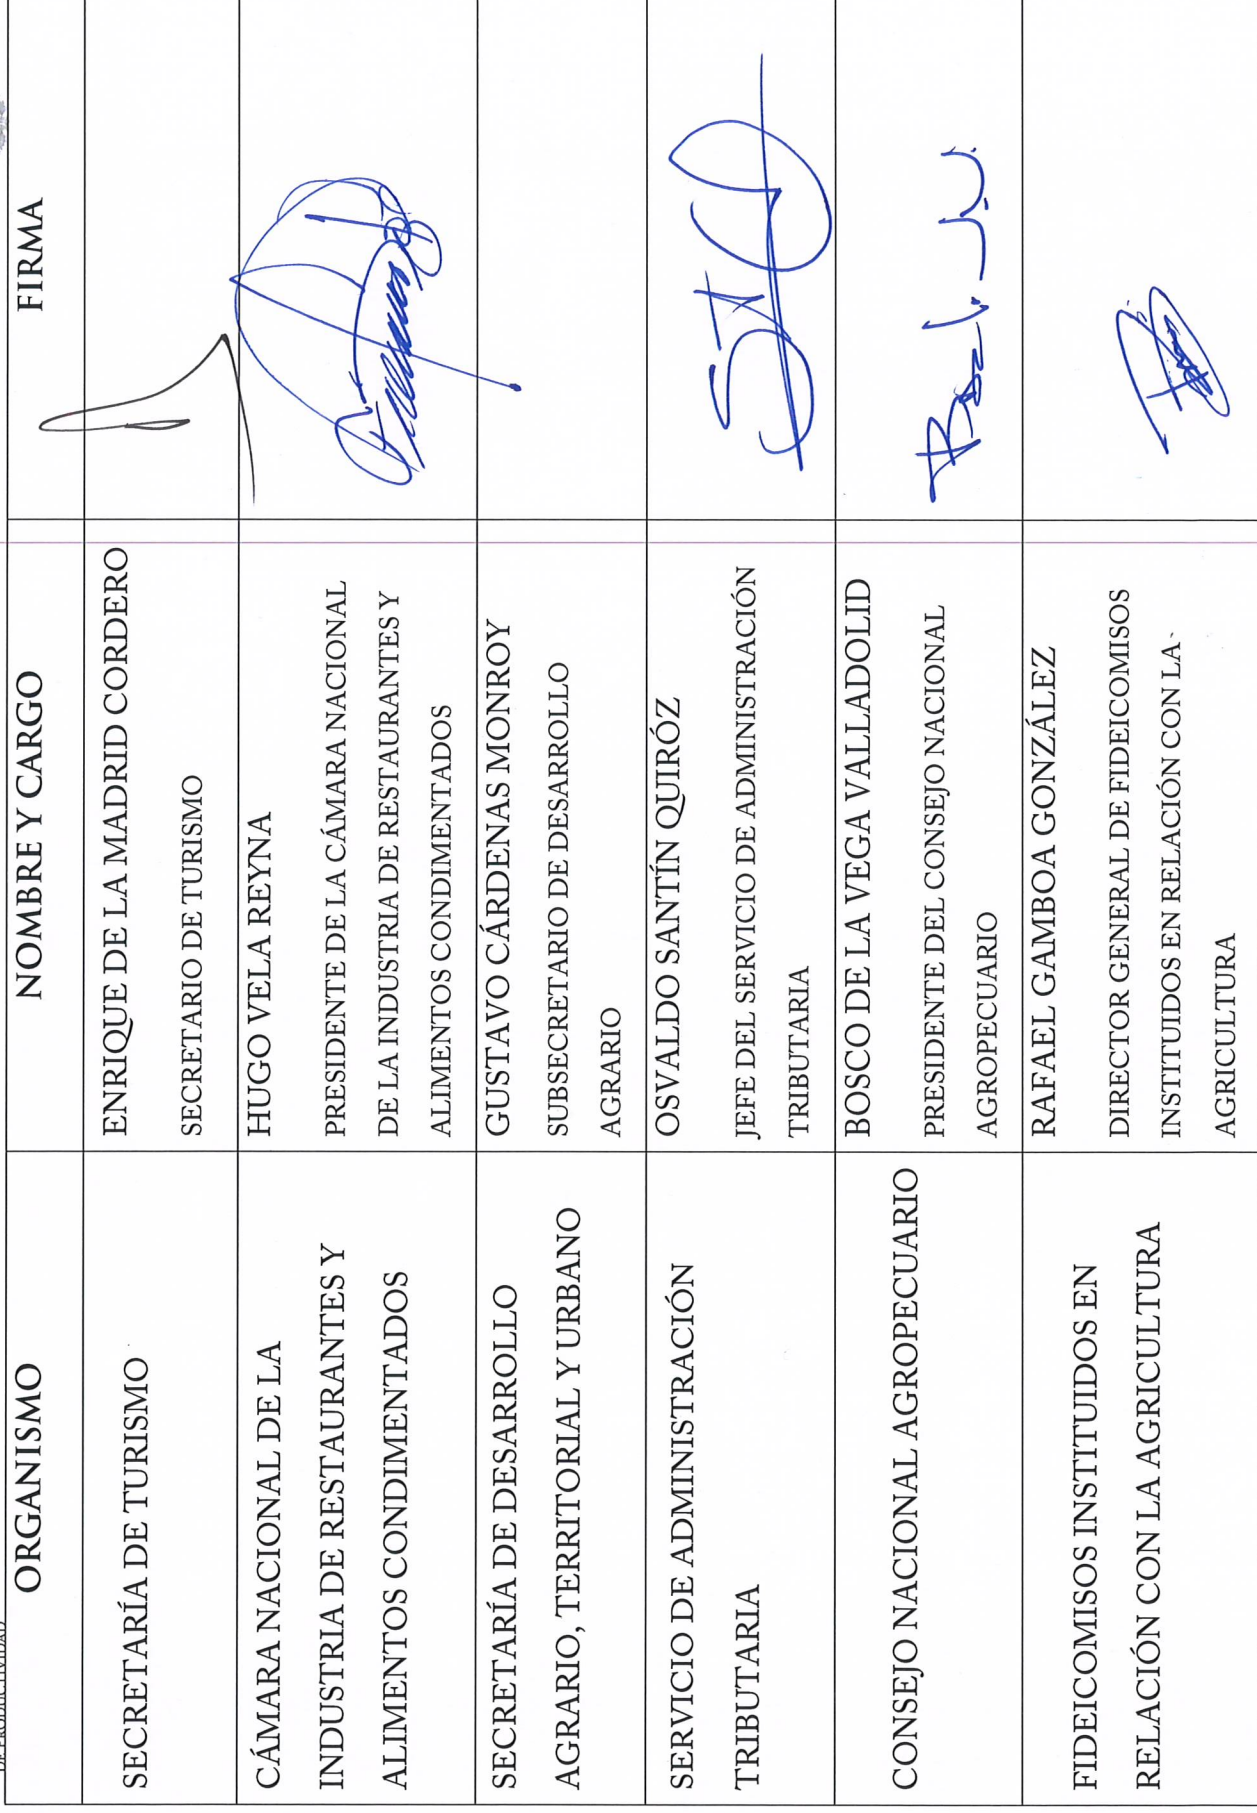 DE PRODUCTIVIDAD
ORGANISMO
NOMBRE Y CARGO
FIRMA
SECRETARÍA DE TURISMO
ENRIQUE DE LA MADRID CORDERO
SECRETARIO DE TURISMO
CÁMARA NACIONAL DE LA
INDUSTRIA DE RESTAURANTES Y
ALIMENTOS CONDIMENTADOS
HUGO VELA REYNA
PRESIDENTE DE LA CÁMARA NACIONAL
DE LA INDUSTRIA DE RESTAURANTES Y
ALIMENTOS CONDIMENTADOS
SECRETARÍA DE DESARROLLO
AGRARIO, TERRITORIAL Y URBANO
GUSTAVO CÁRDENAS MONROY
SUBSECRETARIO DE DESARROLLO
AGRARIO
SERVICIO DE ADMINISTRACIÓN
TRIBUTARIA
OSVALDO SANTÍN QUIRÓZ
JEFE DEL SERVICIO DE ADMINISTRACIÓN
TRIBUTARIA
CONSEJO NACIONAL AGROPECUARIO
BOSCO DE LA VEGA VALLADOLID
PRESIDENTE DEL CONSEJO NACIONAL
AGROPECUARIO
FIDEICOMISOS INSTITUIDOS EN
RELACIÓN CON LA AGRICULTURA
RAFAEL GAMBOA GONZÁLEZ
DIRECTOR GENERAL DE FIDEICOMISOS
INSTITUIDOS EN RELACIÓN CON LA
AGRICULTURA